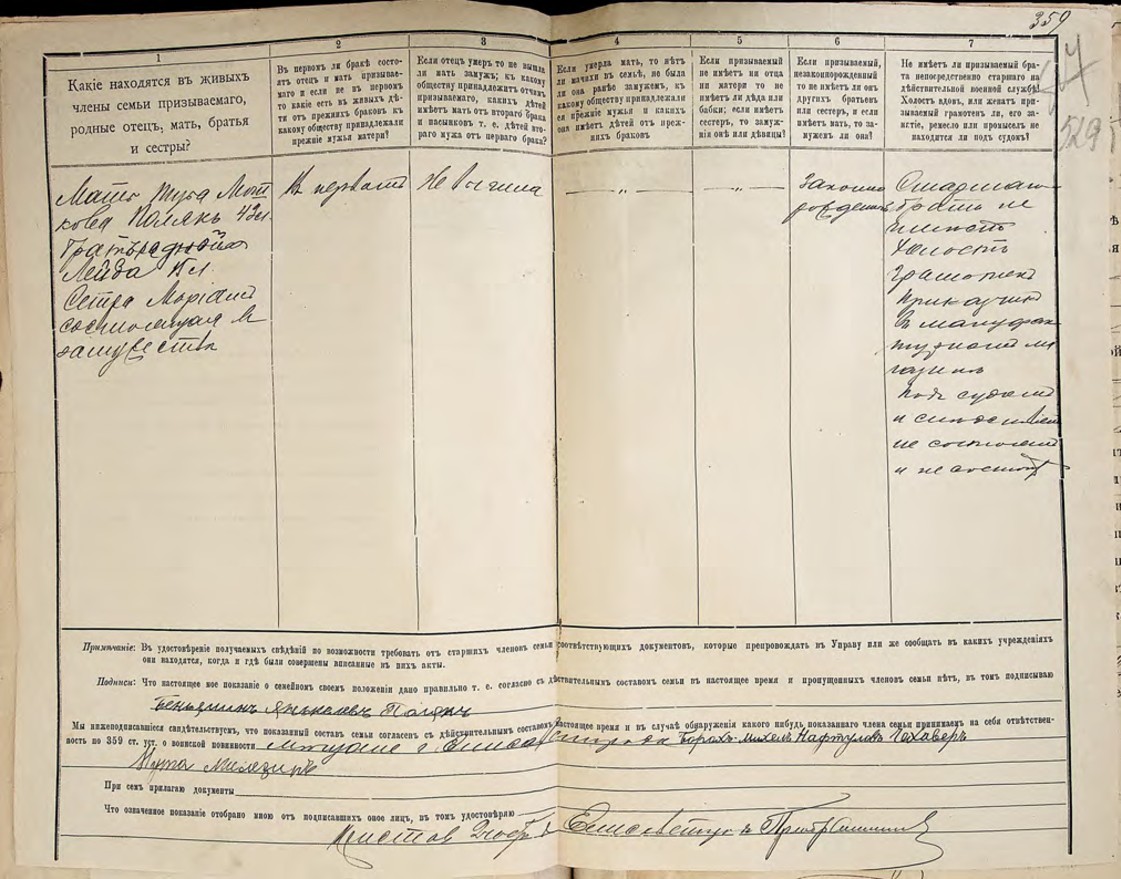 359
529
1
2
3
4
5
6
7
Какіе находятся въ живыхъ
члены семьи призываемаго,
родные отецъ, мать, братья
и сестры?
Въ первомъ ли бракѣ состо-
ятъ отецъ и мать призывае-
маго и если не въ первомъ
то какіе есть въ живыхъ дѣ-
ти отъ прежнихъ браковъ къ
какому обществу принадлежали
прежніе мужья матери?
Если отецъ умеръ то не вышла
ли мать замужъ; къ какому
обществу принадлежитъ отчимъ
призываемаго, какихъ дѣтей
имѣетъ мать отъ втораго брака
и пасынковъ т. е. дѣтей вто-
раго мужа отъ перваго брака?
Если умерла мать, то нѣтъ
ли мачихи въ семьѣ, не была
ли она ранѣе замужемъ, къ
какому обществу принадлежали
ея прежніе мужья и какихъ
она имѣетъ дѣтей отъ преж-
нихъ браковъ
Если призываемый
не имѣетъ ни отца
ни матери то не
имѣетъ ли дѣда или
бабки; если имѣетъ
сестеръ, то замуж-
нія онѣ или дѣвицы?
Если призываемый,
незаконнорожденный
то не имѣетъ ли онъ
другихъ братьевъ
или сестеръ, и если
имѣетъ мать, то за-
мужемъ ли она?
Не имѣетъ ли призываемый бра-
та непосредственно старшаго на
дѣйствительной военной службѣ?
Холостъ вдовъ, или женатъ при-
зываемый грамотенъ ли, его за-
нятіе, ремесло или промыселъ не
находится ли подъ судомъ?
Мать
кова Полякъ 43 л.
Братъ родной
Лейба
Сестра Маріамъ
состоящая въ
замужествѣ
Въ первомъ
Не вышла
— „ —
— „ —
Законно
рожденный
Старшаго
брата не
имѣетъ
Холостъ
грамотенъ
прикащикъ
въ мануфак
турномъ ма
газинѣ
подъ судомъ
и слѣдствіемъ
не состоялъ
и не состоитъ
Примѣчаніе: Въ удостовѣреніе получаемыхъ свѣдѣній по возможности требовать отъ старшихъ членовъ семьи соотвѣтствующихъ документовъ, которые препровождать въ Управу или же сообщать въ какихъ учрежденіяхъ
они находятся, когда и гдѣ были совершены вписанные въ нихъ акты.
Подписи: Что настоящее мое показаніе о семейномъ своемъ положеніи дано правильно т. е. согласно съ дѣйствительнымъ составомъ семьи въ настоящее время и пропущенныхъ членовъ семьи нѣтъ, въ томъ подписываю
Беньяминъ Янкелевъ Полякъ
Мы нижеподписавшіеся свидѣтельствуемъ, что показанный составъ семьи согласенъ съ дѣйствительнымъ составомъ настоящее время и въ случаѣ обнаруженія какого нибудь показаннаго члена семьи принимаемъ на себя отвѣтствен-
ность по 359 ст. уст. о воинской повинности мѣщане г. Борахъ-Михель Нафтуловъ Чехаверъ
При семъ прилагаю документы
Что означенное показаніе отобрано мною отъ подписавшихъ оное лицъ, въ томъ удостовѣряю
Приставъ